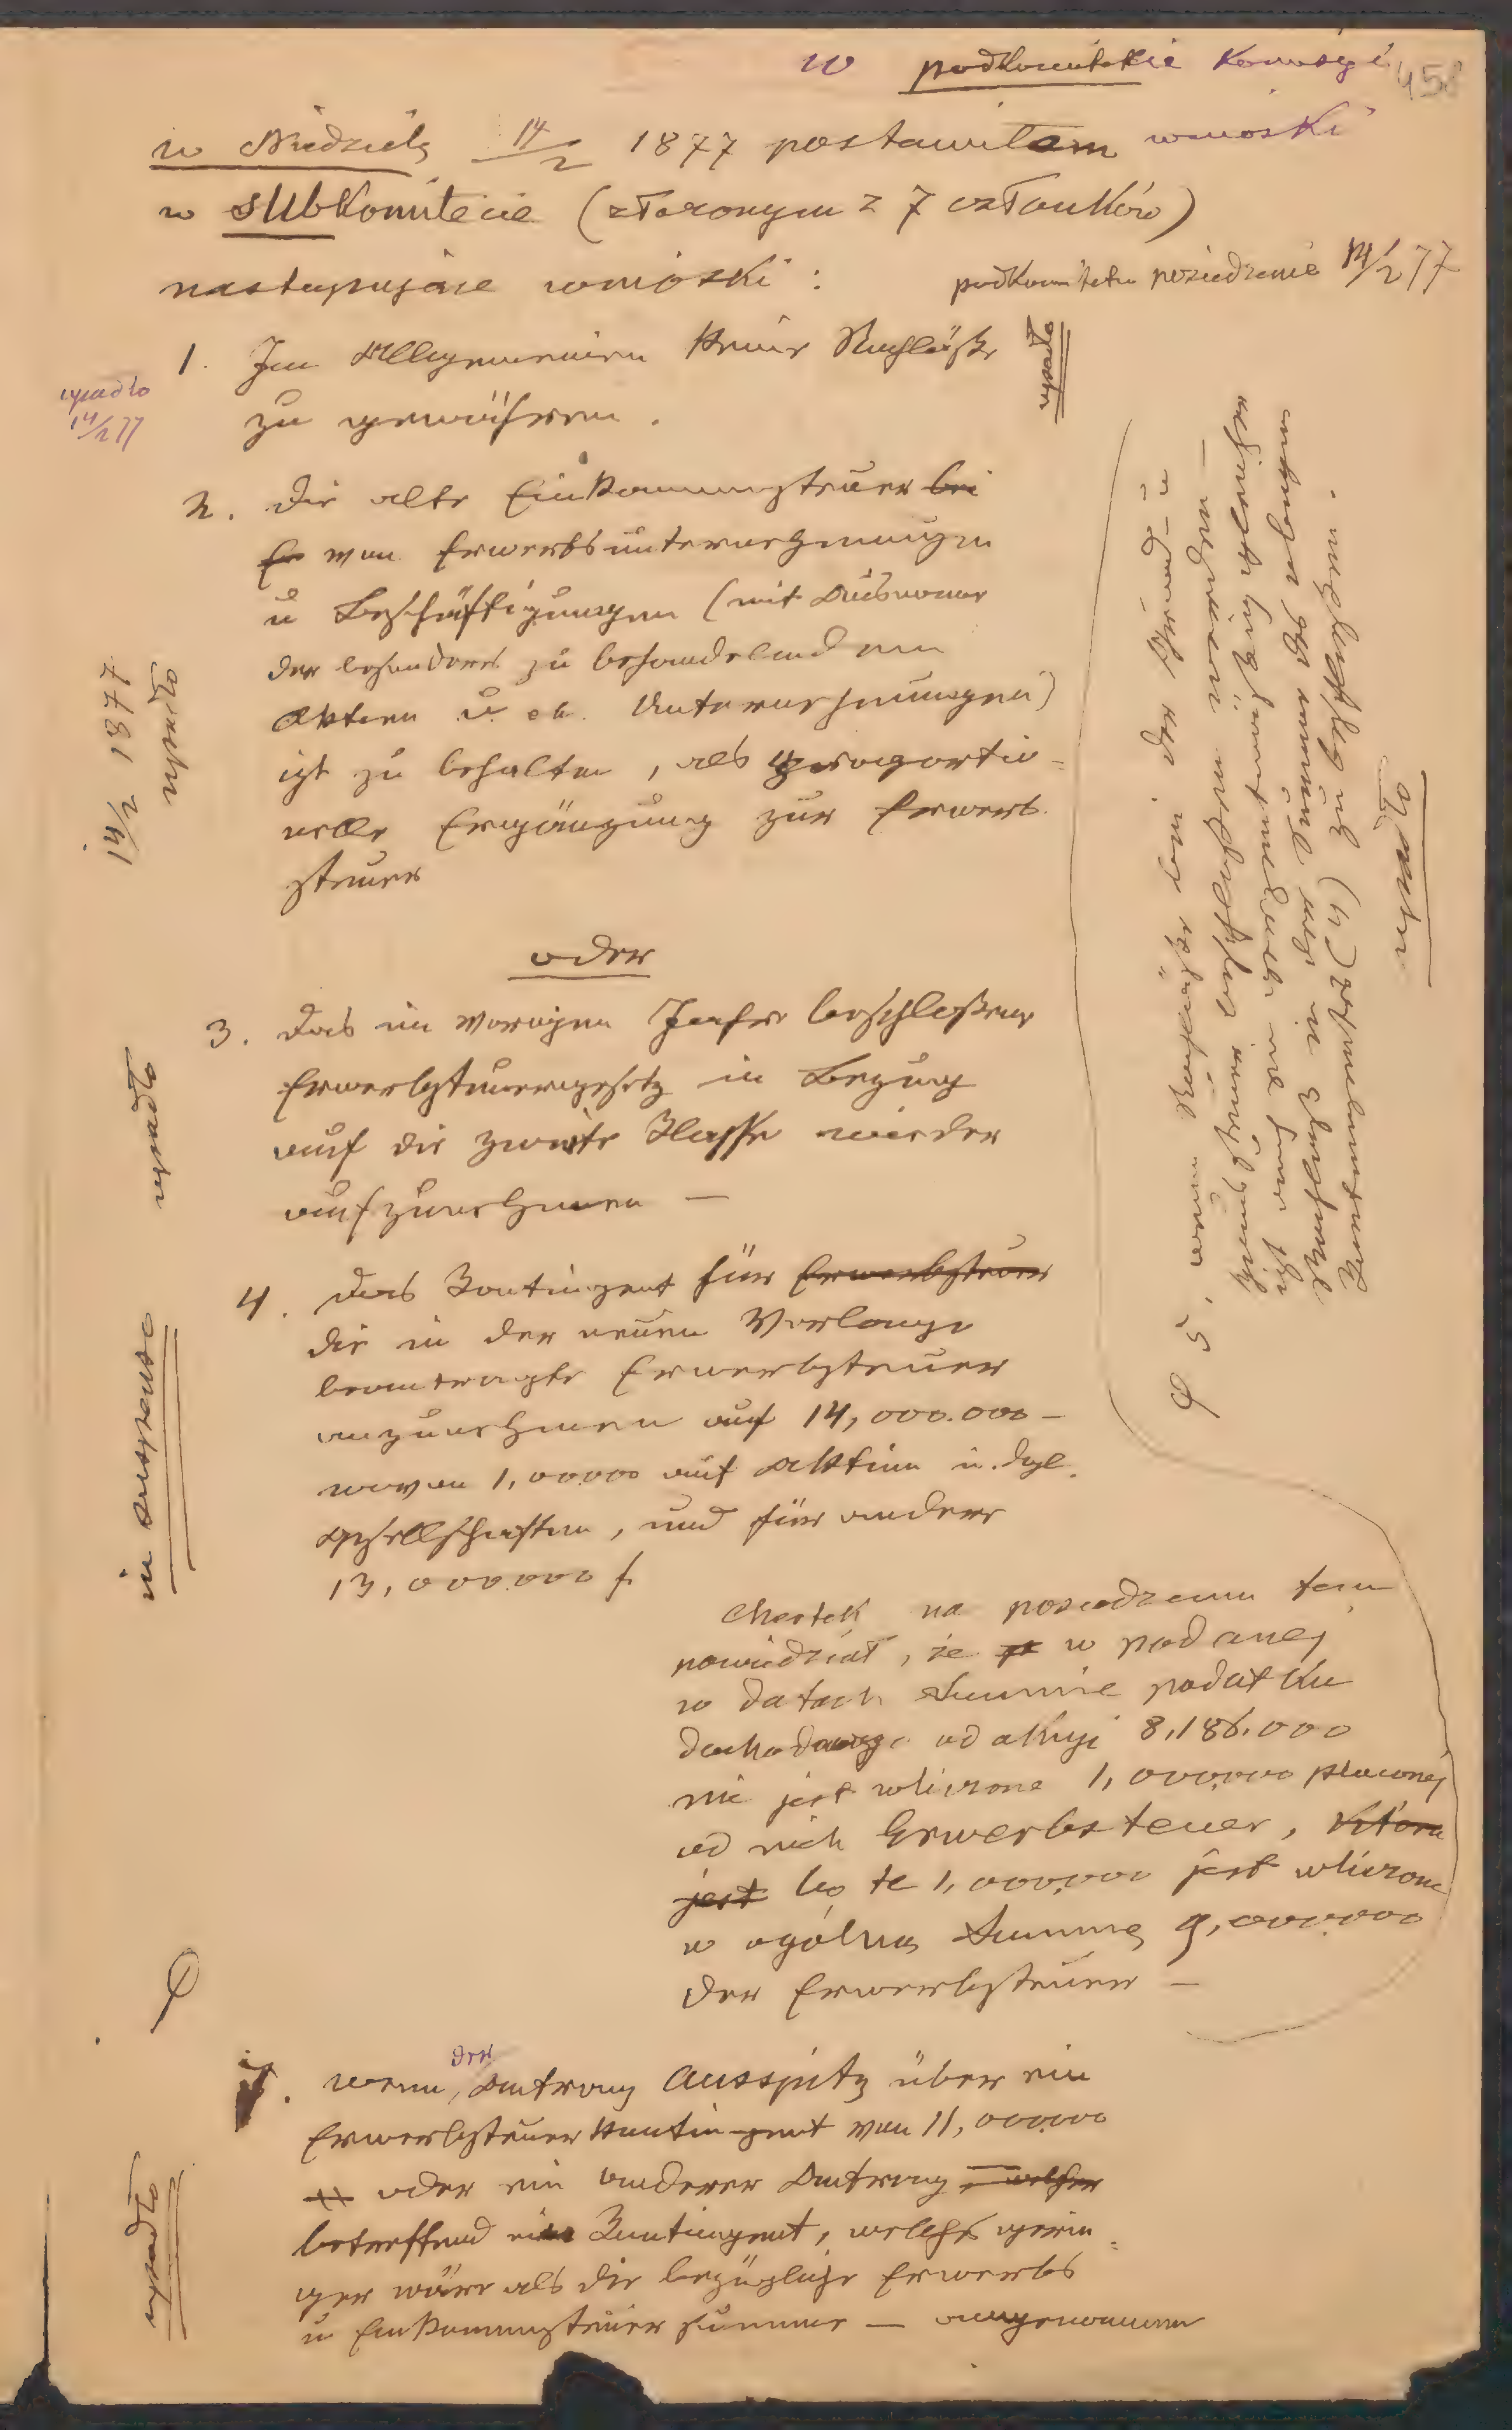 w podkomitecie Komisyi
458
w Niedzielę 14/2 1877 postawiłem wnioski
w subkomitecie (złożonym z 7 członków)
następujące wnioski :
podkomitetu posiedzenie 14/2 77
1. Im Allgemeinen keine Nachläße
zu gewähren.
upadło
upadło
14/2 77
2. die alte Einkommensteuer bei
Er von Erwerbsunternehmungen
u Beschäftigungen (mit Ausnahme
der besonders zu behandelnden
Aktien u. Unternehmungen)
ist zu behalten, als proportio-
nelle Ergänzung zur Erwerb-
steuer
14/2 1877
upadło
oder
3. das im vorigen Jahre beschloßene
Erwerbsteuergesetz in Bezug
auf die zweite Klasse wieder
aufzunehmen —
upadło
4. das Kontingent für Erwerbsteuer
die in der neuen Vorlage
beantragte Erwerbsteuer
anzunehmen auf 14,000.000 —
wovon 1,000000 auf Aktien u. dgl.
Gesellschaften, und für andere
13,000000 f.
in suspenso
5. wenn Nachläße bei der Grund- u
Hauszinssteuer beschloßen werden —
ist auch ein verhältnismäßig gleicher
Nachlaß in der Summe des neuen
Kontingentes (4) zu beschließen.
upadło
na posiedzeniu tem
powiedział, że w podanej
w datach Summie podatku
dochodowego od akcyi 8,186.000
nie jest wliczone 1,000000 płaconej
od nich Erwerbsteuer, która
jest bo te 1,000,000 jest wliczone
w ogólną Summę 9,000000
der Erwerbsteuer —
wenn der Antrag Auspitz über ein
Erwerbsteuerkontingent von 11,000000
oder ein anderer Antrag, welcher
betreffend ein Kontingent, welches gerin-
ger wäre als die bezügliche Erwerbs
u Einkommensteuer Summe — angenommen
upadło